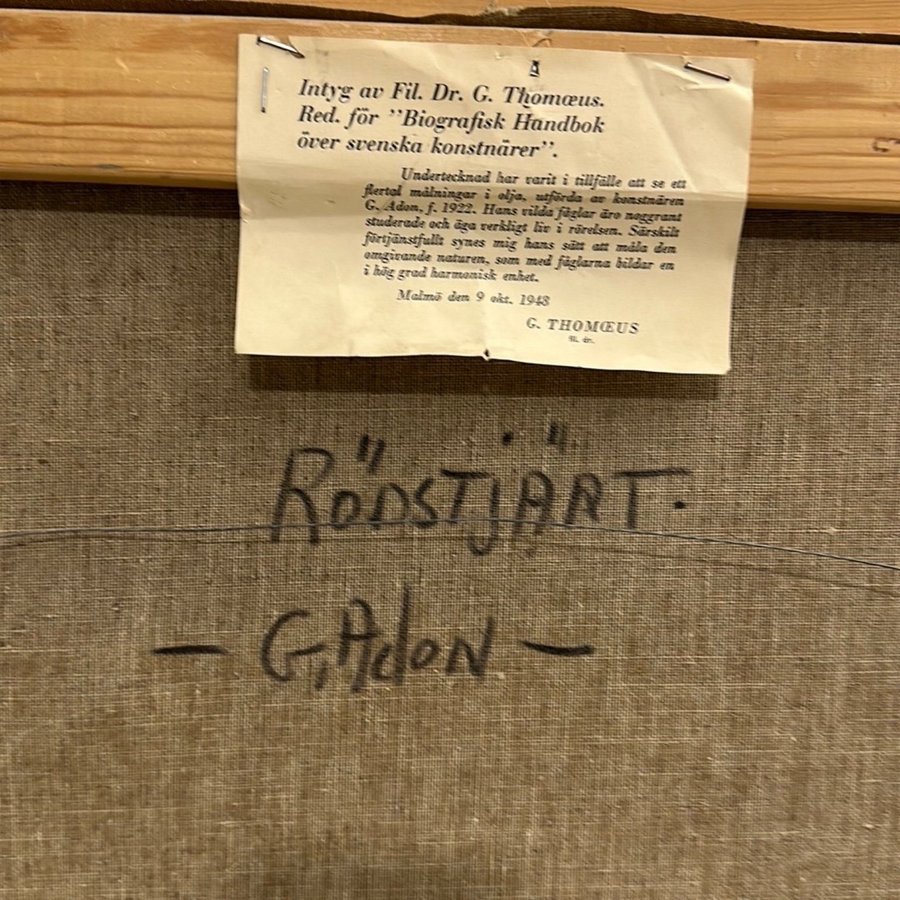 Intyg av Fil. Dr. G. Thomœus.
Red. för "Biografisk Handbok
över svenska konstnärer".
Undertecknad har varit i tillfälle att se ett
flertal målningar i olja, utförda av konstnären
G. Adon, f. 1922. Hans vilda fåglar äro noggrant
studerade och äga verkligt liv i rörelsen. Särskilt
förtjänstfullt synes mig hans sätt att måla den
omgivande naturen, som med fåglarna bildar en
i hög grad harmonisk enhet.
Malmö den 9 okt. 1948
G. THOMŒUS
fil. dr.
RÖDSTJÄRT.
— G. Adon —